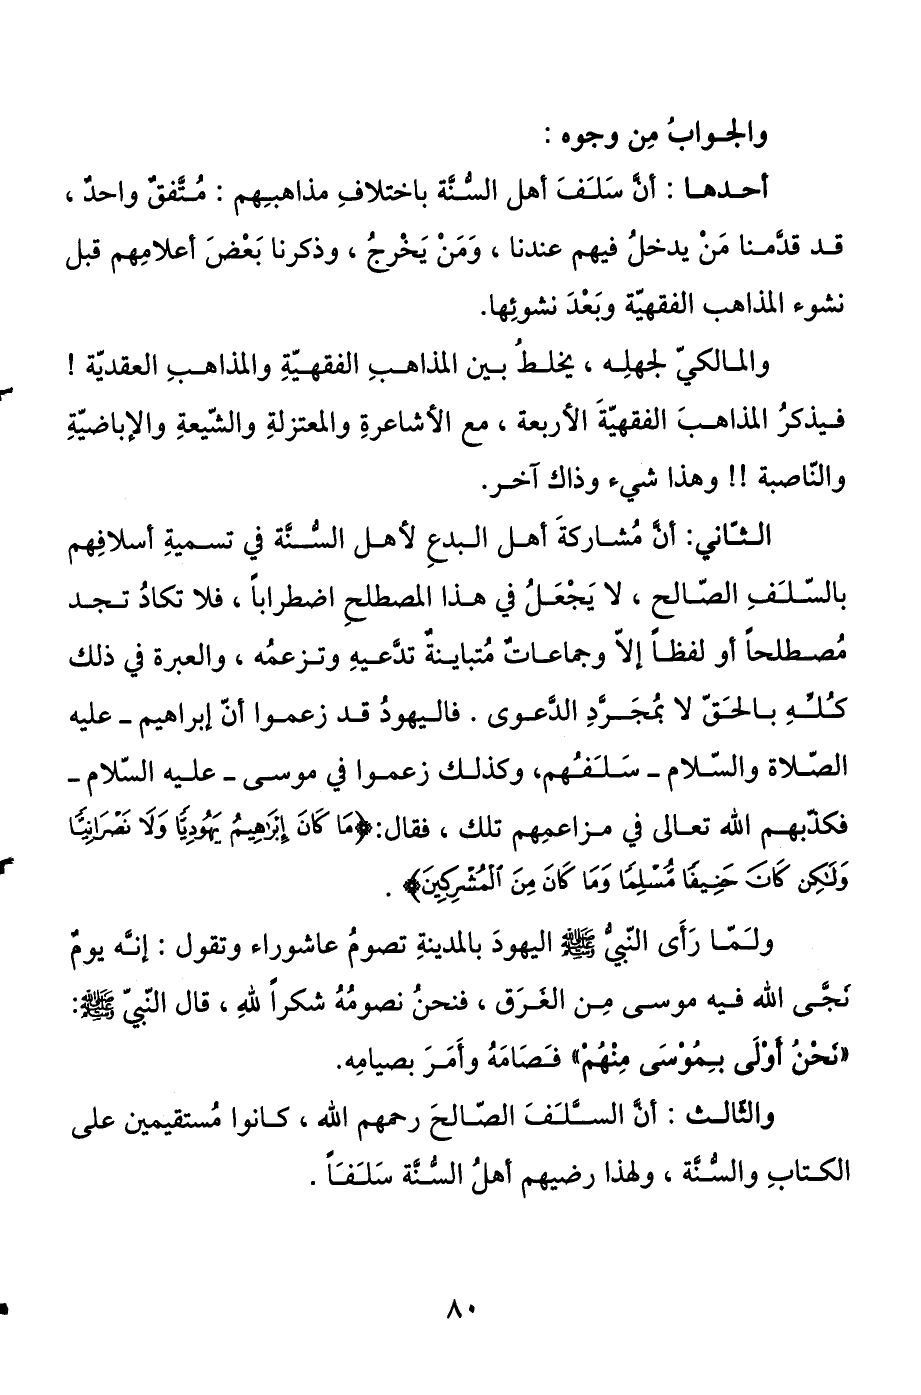 والجوابُ مِن وجوه :
أحدها : أنَّ سَلَفَ أهل السُّنَّة باختلافِ مذاهبهم : مُتَّفقٌ واحدٌ ،
قد قدَّمنا مَنْ يدخلُ فيهم عندنا ، وَمَنْ يَخْرجُ ، وذكرنا بَعْضَ أعلامِهم قبل
نشوء المذاهب الفقهيّة وبَعْدَ نشوئِها.
والمالكيّ لجهلِه ، يخلطُ بين المذاهبِ الفقهيَّةِ والمذاهبِ العقديَّة !
فيذكرُ المذاهبَ الفقهيَّةَ الأربعة ، مع الأشاعرةِ والمعتزلةِ والشّيعةِ والإباضيَّةِ
والنّاصبة !! وهذا شيء وذاك آخر.
الثّاني: أنَّ مُشاركةَ أهل البدعِ لأهل السُّنَّة في تسميةِ أسلافِهم
بالسّلَفِ الصّالح ، لا يَجْعَلُ في هذا المصطلحِ اضطراباً ، فلا تكادُ تجد
مُصطلحاً أو لفظاً إلاّ وجماعاتٌ مُتباينةٌ تدَّعيهِ وتزعمُه ، والعبرة في ذلك
كُلِّهِ بالحَقّ لا بمُجَرَّدِ الدَّعوى . فاليهودُ قد زعموا أنّ إبراهيم ـ عليه
الصّلاة والسّلام ـ سَلَفُهم، وكذلك زعموا في موسى ـ عليه السّلام ـ
فكذّبهم الله تعالى في مزاعمِهم تلك ، فقال: ﴿مَا كَانَ إِبْرَاهِيمُ يَهُودِيًّا وَلَا نَصْرَانِيًّا
وَلَٰكِن كَانَ حَنِيفًا مُّسْلِمًا وَمَا كَانَ مِنَ ٱلْمُشْرِكِينَ﴾ .
ولَمّا رَأَى النّبيُّ ﷺ اليهودَ بالمدينةِ تصومُ عاشوراء وتقول : إنَّه يومٌ
نَجَّى الله فيه موسى مِن الغَرَق ، فنحنُ نصومُهُ شكراً للهِ ، قال النّبيّ ﷺ:
«نَحْنُ أَوْلَى بِمُوْسَى مِنْهُمْ» فَصَامَهُ وأَمَرَ بصيامِه.
والثّالث : أنَّ السَّلَفَ الصّالحَ رحمهم الله ، كانوا مُستقيمين على
الكتابِ والسُّنَّة ، ولهذا رضيهم أهلُ السُّنَّة سَلَفَاً .
٨٠